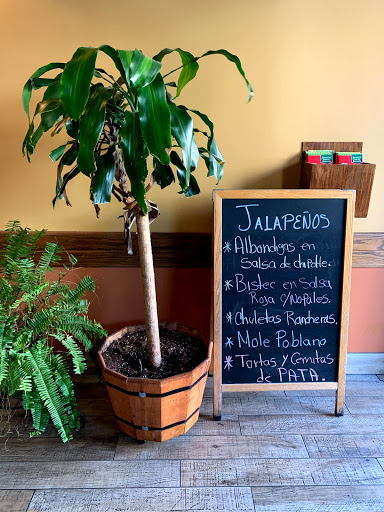 JALAPEÑOS
* Albondigas en
Salsa de chipotle.
* Bistec en Salsa
Roja c/Nopales.
* Chuletas Rancheras.
* Mole Poblano
* Tortas y Cemitas
de PATA.